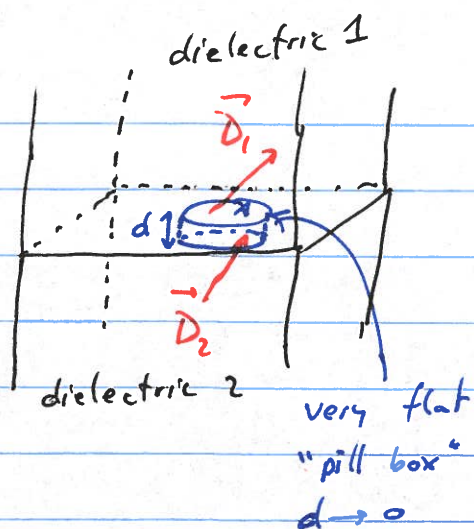 dielectric 1
D⃗₁
d
D⃗₂
dielectric 2
very flat
"pill box"
d → 0